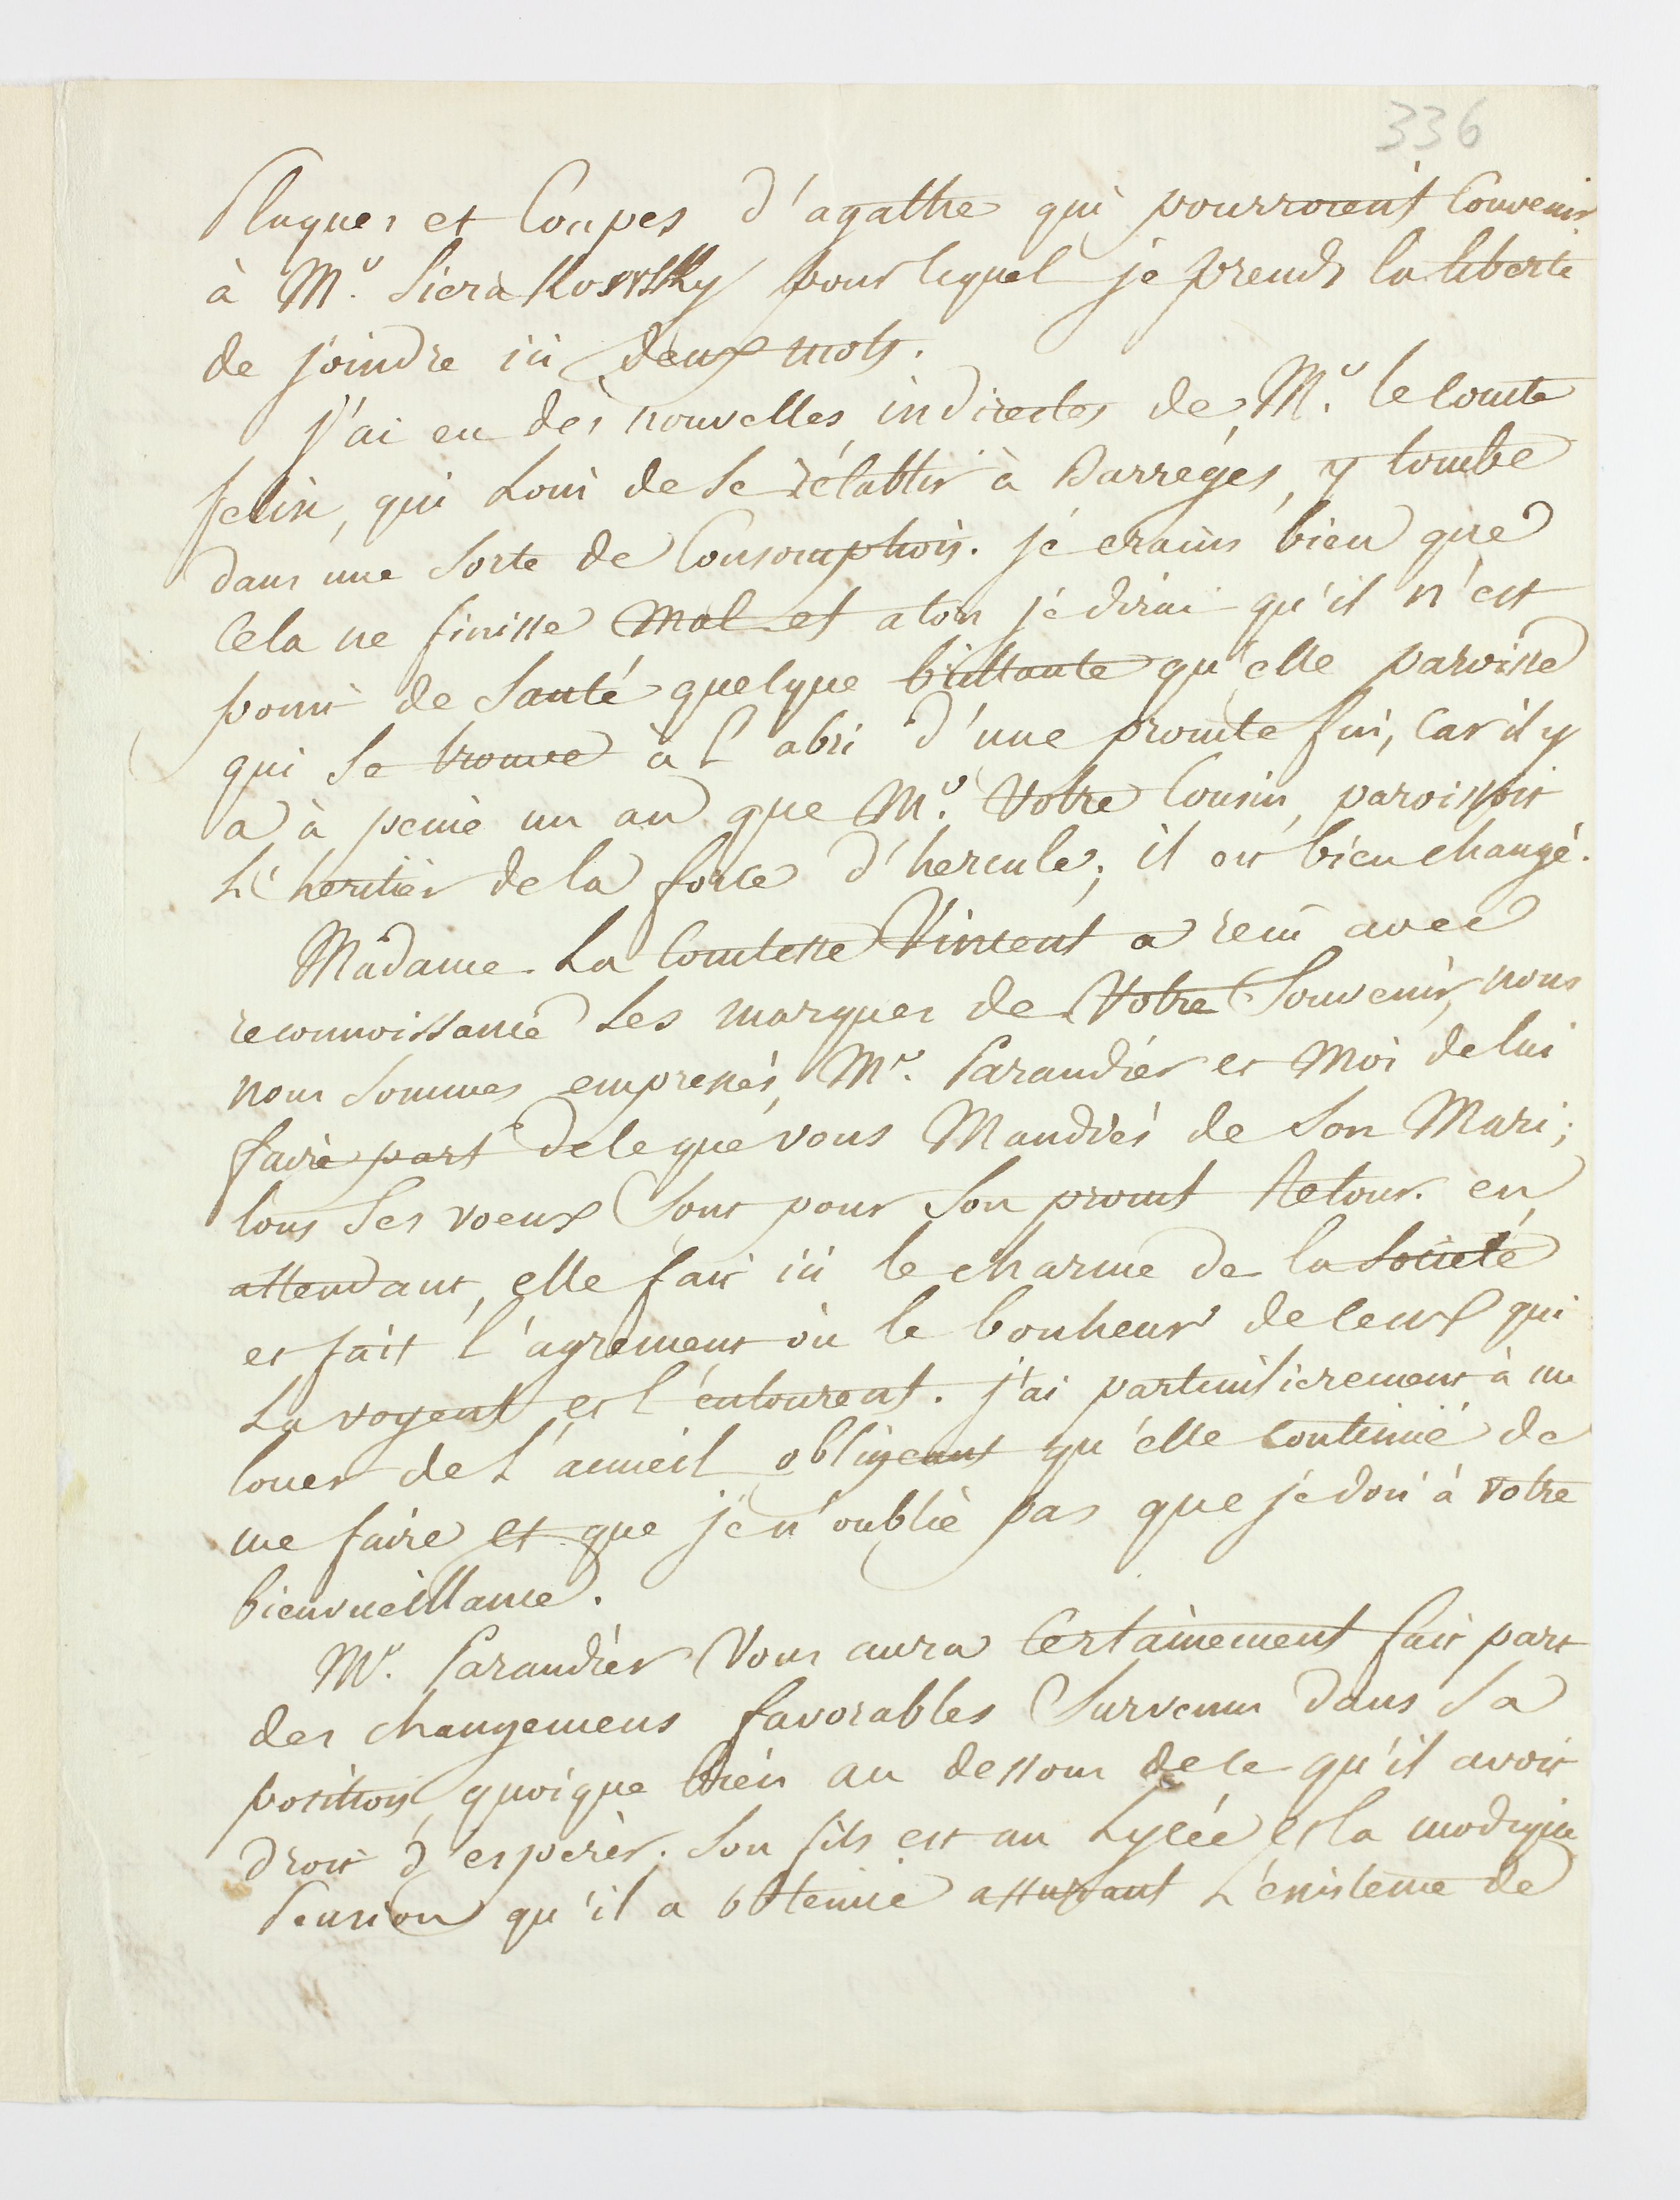 336
Plaques et Coupes d'agathe qui pourroient Convenir
à Mr. Sierakowsky pour lequel je prends la liberté
de joindre ici deux mots.
J'ai eu des nouvelles indirectes de Mr. le comte
felix, qui Loin de Se rétablir à Barrèges, y tombe
dans une Sorte de Consomption. je crains bien que
Cela ne finisse Mal et alors je dirai qu'il n'est
point de Santé quelque brillante qu'elle paroisse
qui Se trouve à l'abri d'une promte fin, Car il y
a à peine un an que Mr. Votre Cousin, paroissoit
L'heritier de la force d'hercule; il est bien changé.
Madame La Comtesse Vincent a recu avec
reconnoissance Les marques de Votre Souvenir, nous
nous Sommes empressés, Mr. Parandier et Moi de lui
faire part de ce que vous Mandiés de Son Mari;
tous Ses voeux Sont pour Son promt Retour. en
attendant, elle fait ici le charme de la Societé
et fait l'agrement ou le bonheur de ceux qui
La voyent et l'entourent. j'ai particulierement à me
louer de L'acueil obligeant qu'elle continue de
me faire et que je n'oublie pas que je dois à votre
bienveuillance.
Mr. Parandier Vous aura Certainement fait part
des changemens favorables Survenus dans Sa
position quoique bien au dessous de ce qu'il avoit
droit d'esperer. Son fils est au Lycée et la modique
Pension qu'il a obtenue assurant L'existence de